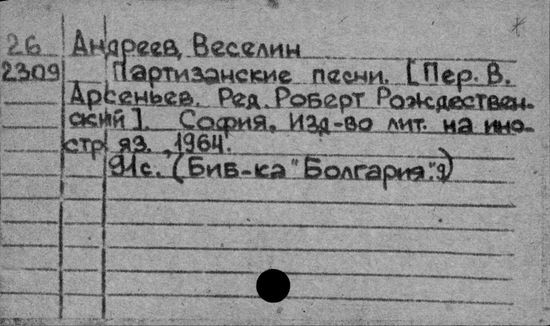 26 Андреев, Веселин
2309 Партизанские песни. [Пер. В.
Арсеньев. Ред. Роберт Рождествен-
ский]. София, Изд-во лит. на ино-
стр яз., 1964.
91с. (Бив-ка "Болгария". 9)